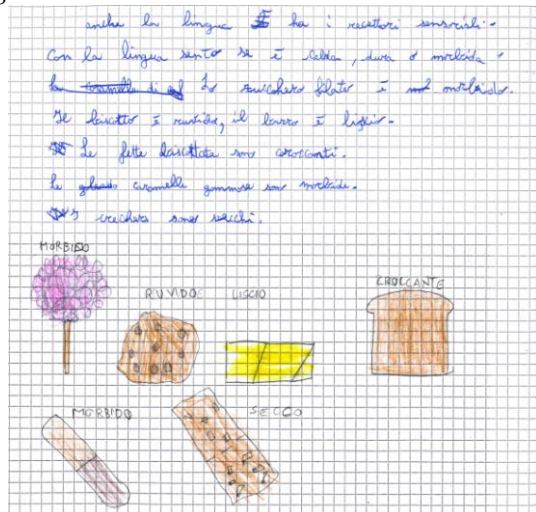 anche la lingua ha i recettori sensoriali.
Con la lingua sento se è calda, dura o morbida.
Lo zucchero filato è morbido.
Il biscotto è ruvido, il burro è liscio.
Le fette biscottate sono croccanti.
Le caramelle gommose sono morbide.
I crechers sono secchi.
MORBIDO
RUVIDO LISCIO CROCCANTE
MORBIDO SECCO